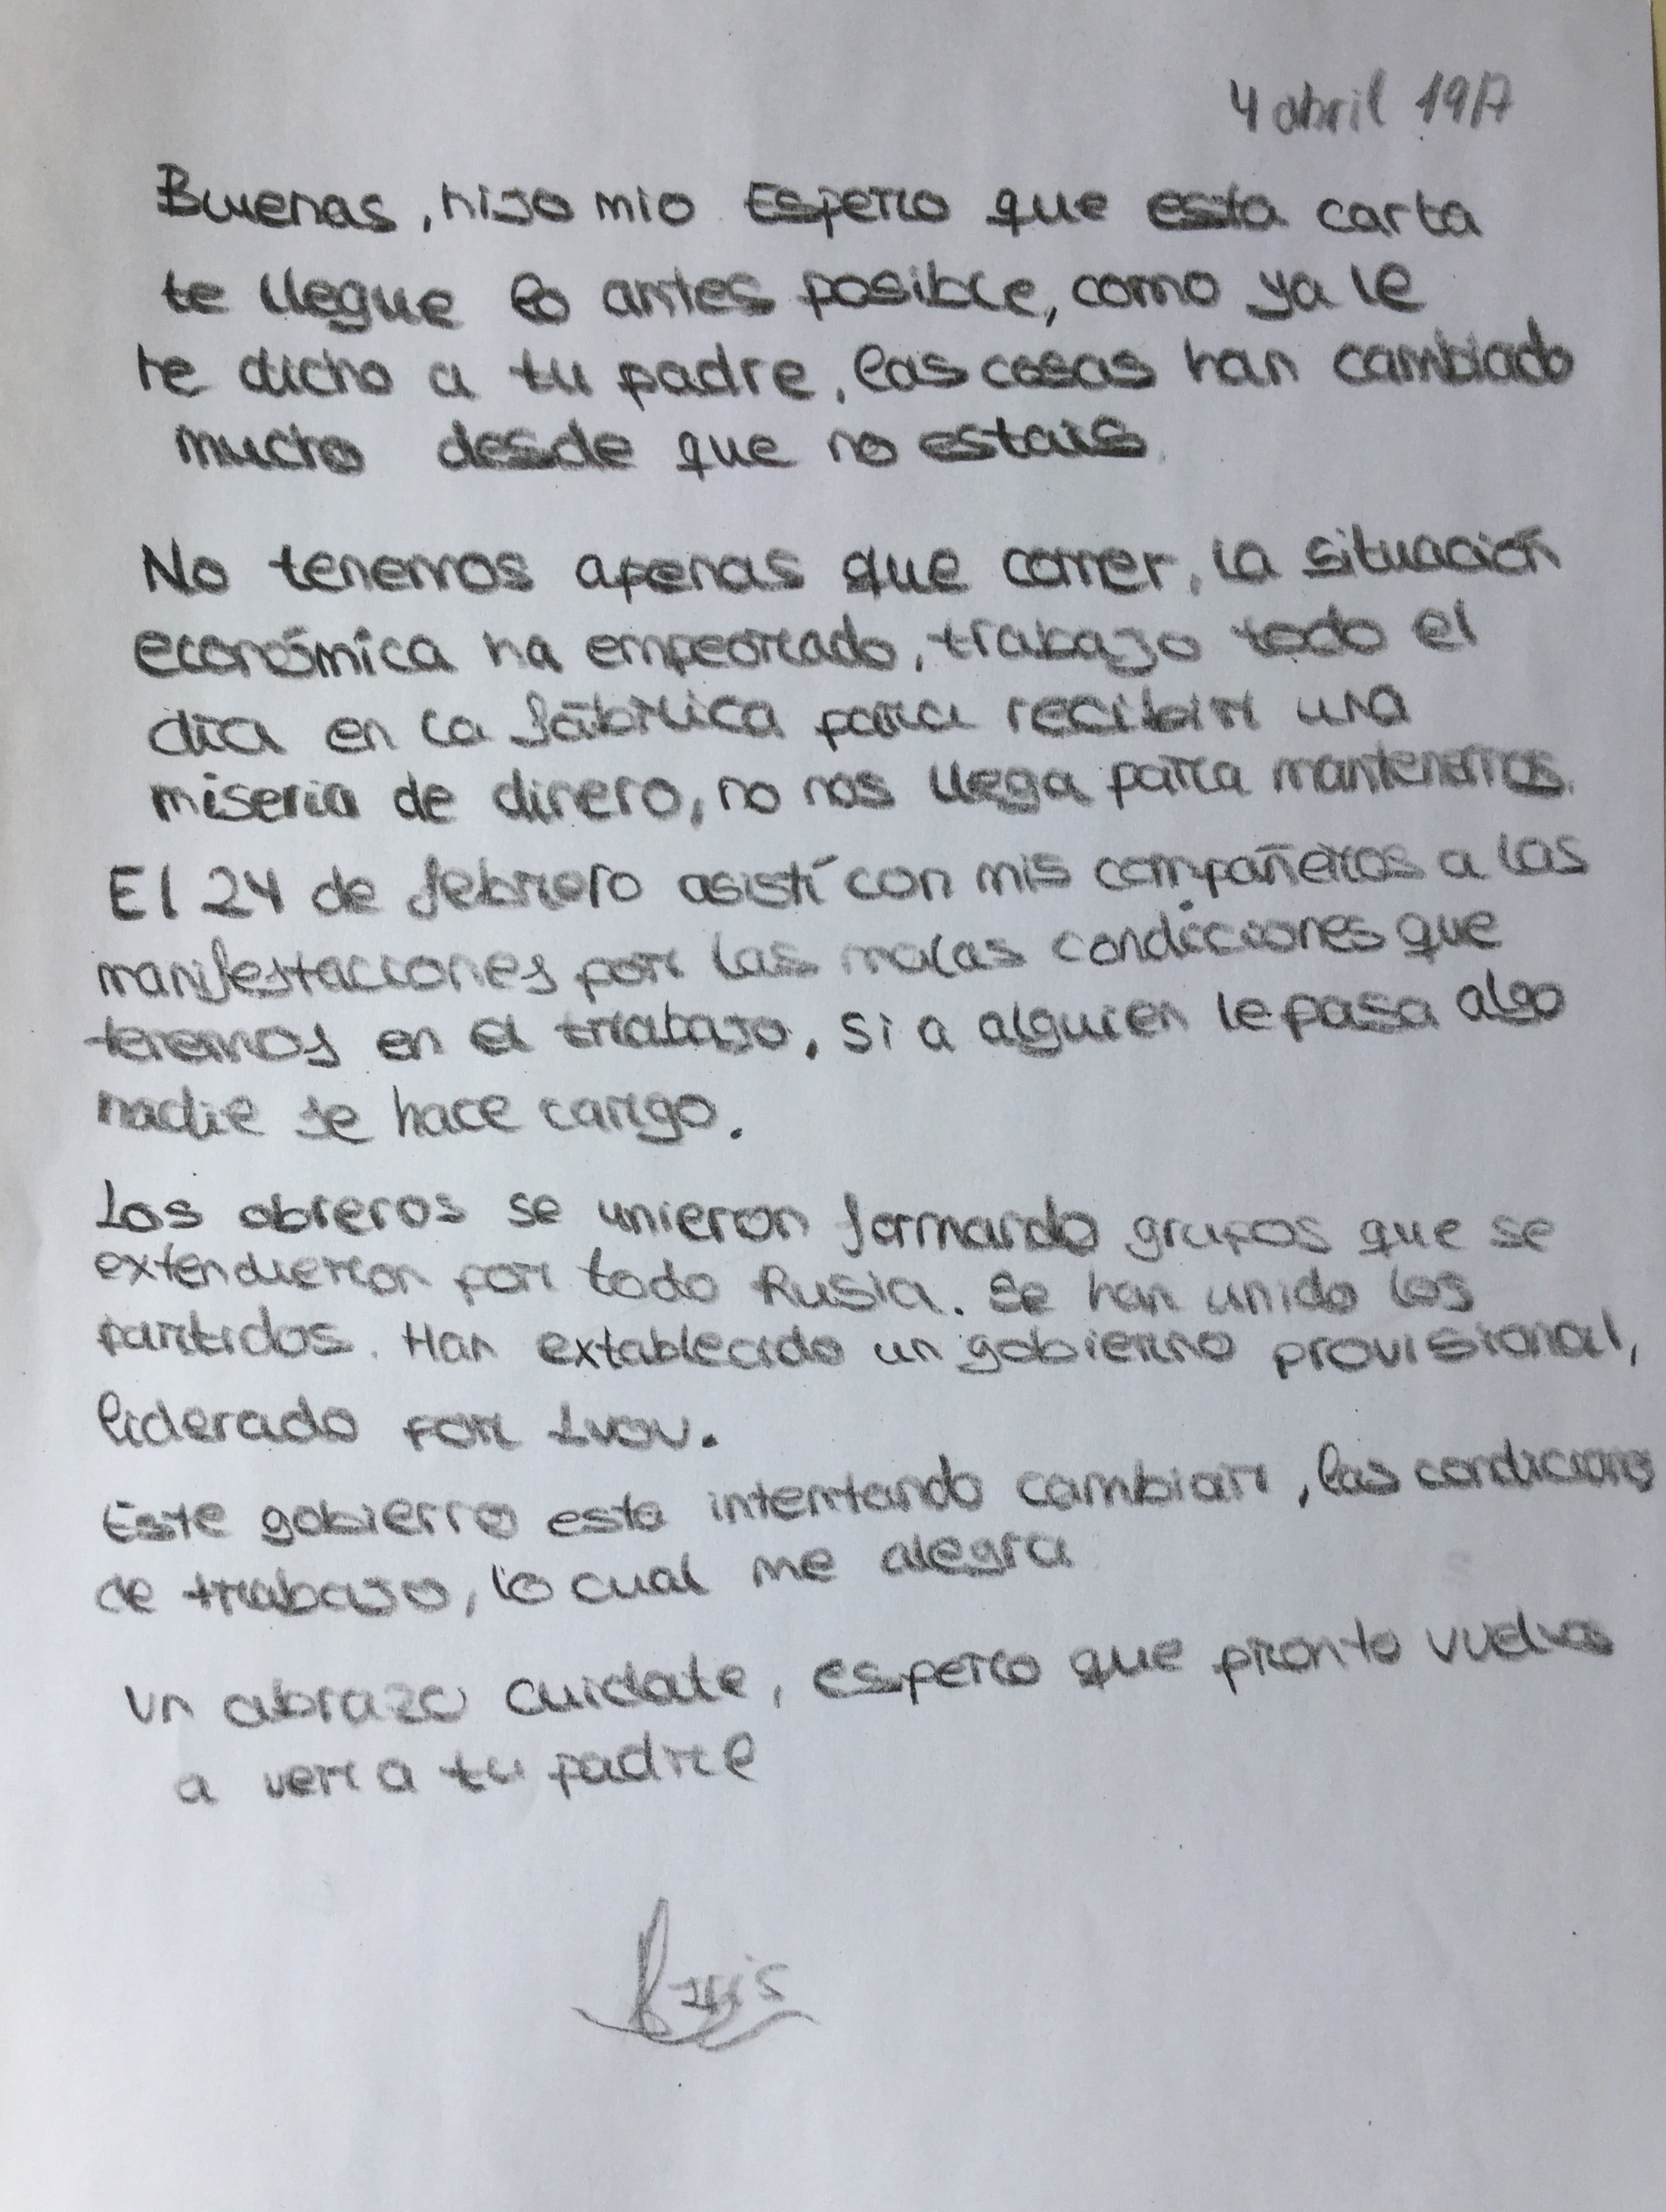 4 abril 1917
Buenas, hijo mio Espero que esta carta
te llegue lo antes posible, como ya le
he dicho a tu padre, las cosas han cambiado
mucho desde que no estais.
No tenemos apenas que comer, la situación
económica ha empeorado, trabajo todo el
día en la fábrica para recibir una
miseria de dinero, no nos llega para mantenernos.
El 24 de febrero asistí con mis compañeros a las
manifestaciones por las malas condiciones que
tenemos en el trabajo, si a alguien le pasa algo
nadie se hace cargo.
Los obreros se unieron formando grupos que se
extendieron por todo Rusia. Se han unido los
partidos. Han extablecido un gobierno provisional,
liderado por Lvov.
Este gobierno esta intentando cambiar, las condiciones
de trabajo, lo cual me alegra
Un abrazo cuidate, espero que pronto vuelvas
a ver a tu padre